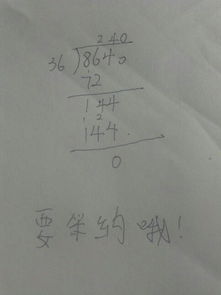 240
36)8640
72
144
144
0
要采纳哦!